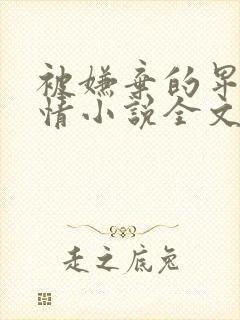 被嫌弃的早
情小说全文
走之底兔